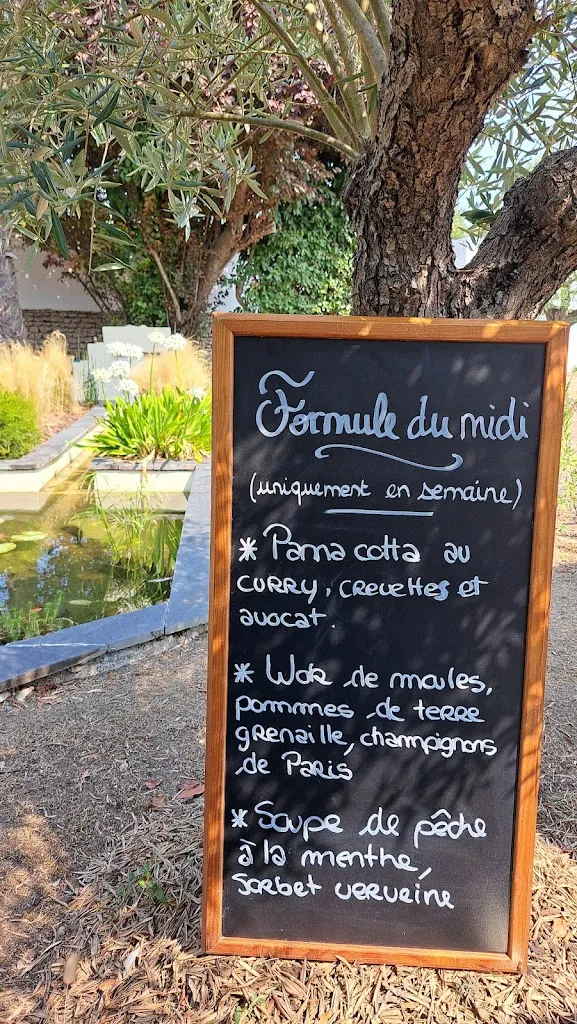 Formule du midi
(uniquement en semaine)
* Pana cotta au
curry, crevettes et
avocat.
* Wok de moules,
pommes de terre
grenaille, champignons
de Paris
* Soupe de pêche
à la menthe,
sorbet verveine